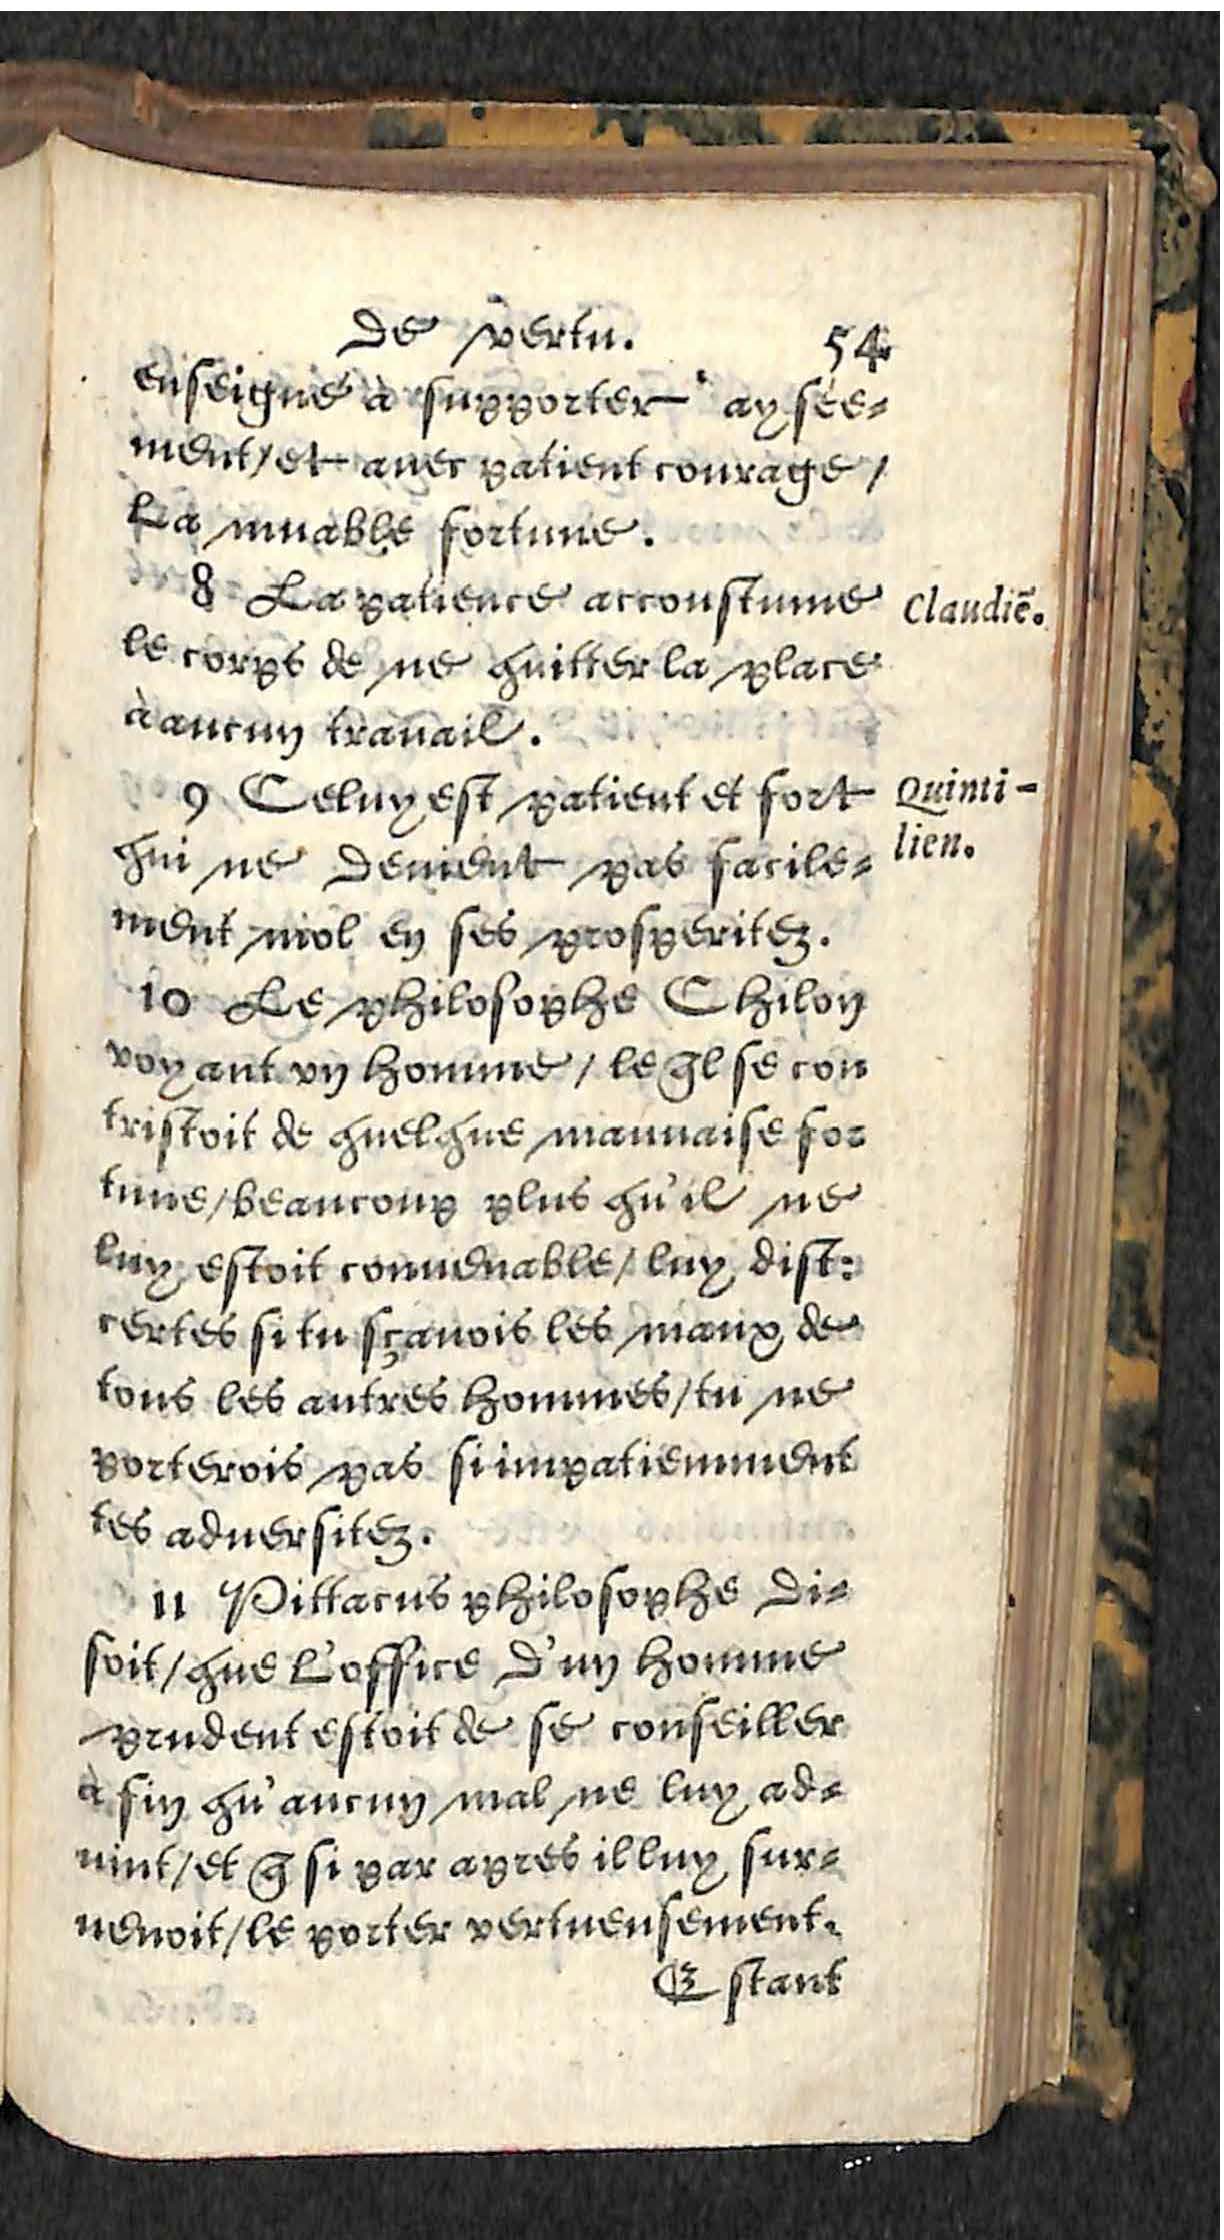 De vertu. 54
enseigné à supporter aysée-
ment/et auec patient courage/
La muable fortune.
8 La patience accoustume
Claudiē.
le corps de ne quitter la place
à aucun trauail.
9 Celuy est patient et fort
Quinti-
lien.
qui ne deuient pas facile-
ment mol en ses prosperitez.
10 Le philosophe Chilon
voyant vn homme/ leq̄l se con
tristoit de quelque mauuaise for
tune/beaucoup plus qu'il ne
luy estoit conuenable/luy dist:
certes si tu sçauois les maux de
tous les autres hommes/tu ne
porterois pas si impatiemment
tes aduersitez.
11 Pittacus philosophe di-
soit/que L'office d'un homme
prudent estoit de se conseiller
à fin qu'aucun mal ne luy ad-
uint/et q̄ si par apres il luy sur-
uenoit/le porter vertueusement.
Estant